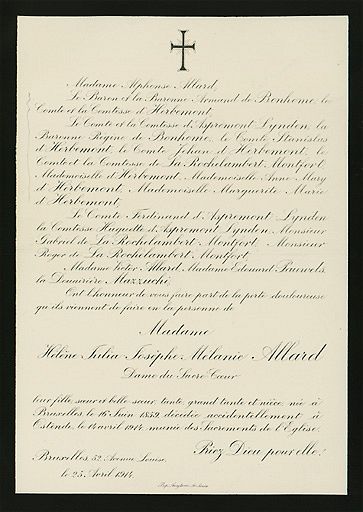 Madame Alphonse Allard,
Le Baron et la Baronne Armand de Bonhome, le
Comte et la Comtesse d'Herbemont,
Le Comte et la Comtesse d'Aspremont Lynden, la
Baronne Régine de Bonhome, le Comte Stanislas
d'Herbemont, le Comte Jehan d'Herbemont, le
Comte et la Comtesse de La Rochelambert Montfort,
Mademoiselle d'Herbemont, Mademoiselle Anne Mary
d'Herbemont, Mademoiselle Marguerite Marie
d'Herbemont,
Le Comte Ferdinand d'Aspremont Lynden
la Comtesse Huguette d'Aspremont Lynden, Monsieur
Gabriel de La Rochelambert Montfort, Monsieur
Roger de La Rochelambert Montfort,
Madame Victor Allard, Madame Edouard Pauwels,
la Douairière Mazzuchi,
Ont l'honneur de vous faire part de la perte douloureuse
qu'ils viennent de faire en la personne de
Madame
Hélène Julia Josèphe Mélanie Allard
Dame du Sacré-Cœur
leur fille, sœur et belle-sœur, tante, grand'tante et nièce, née à
Bruxelles, le 16 Juin 1852, décédée accidentellement à
Ostende, le 14 avril 1914, munie des Sacrements de l'Eglise.
Priez Dieu pour elle!
Bruxelles, 52, Avenue Louise,
le 25 Avril 1914.